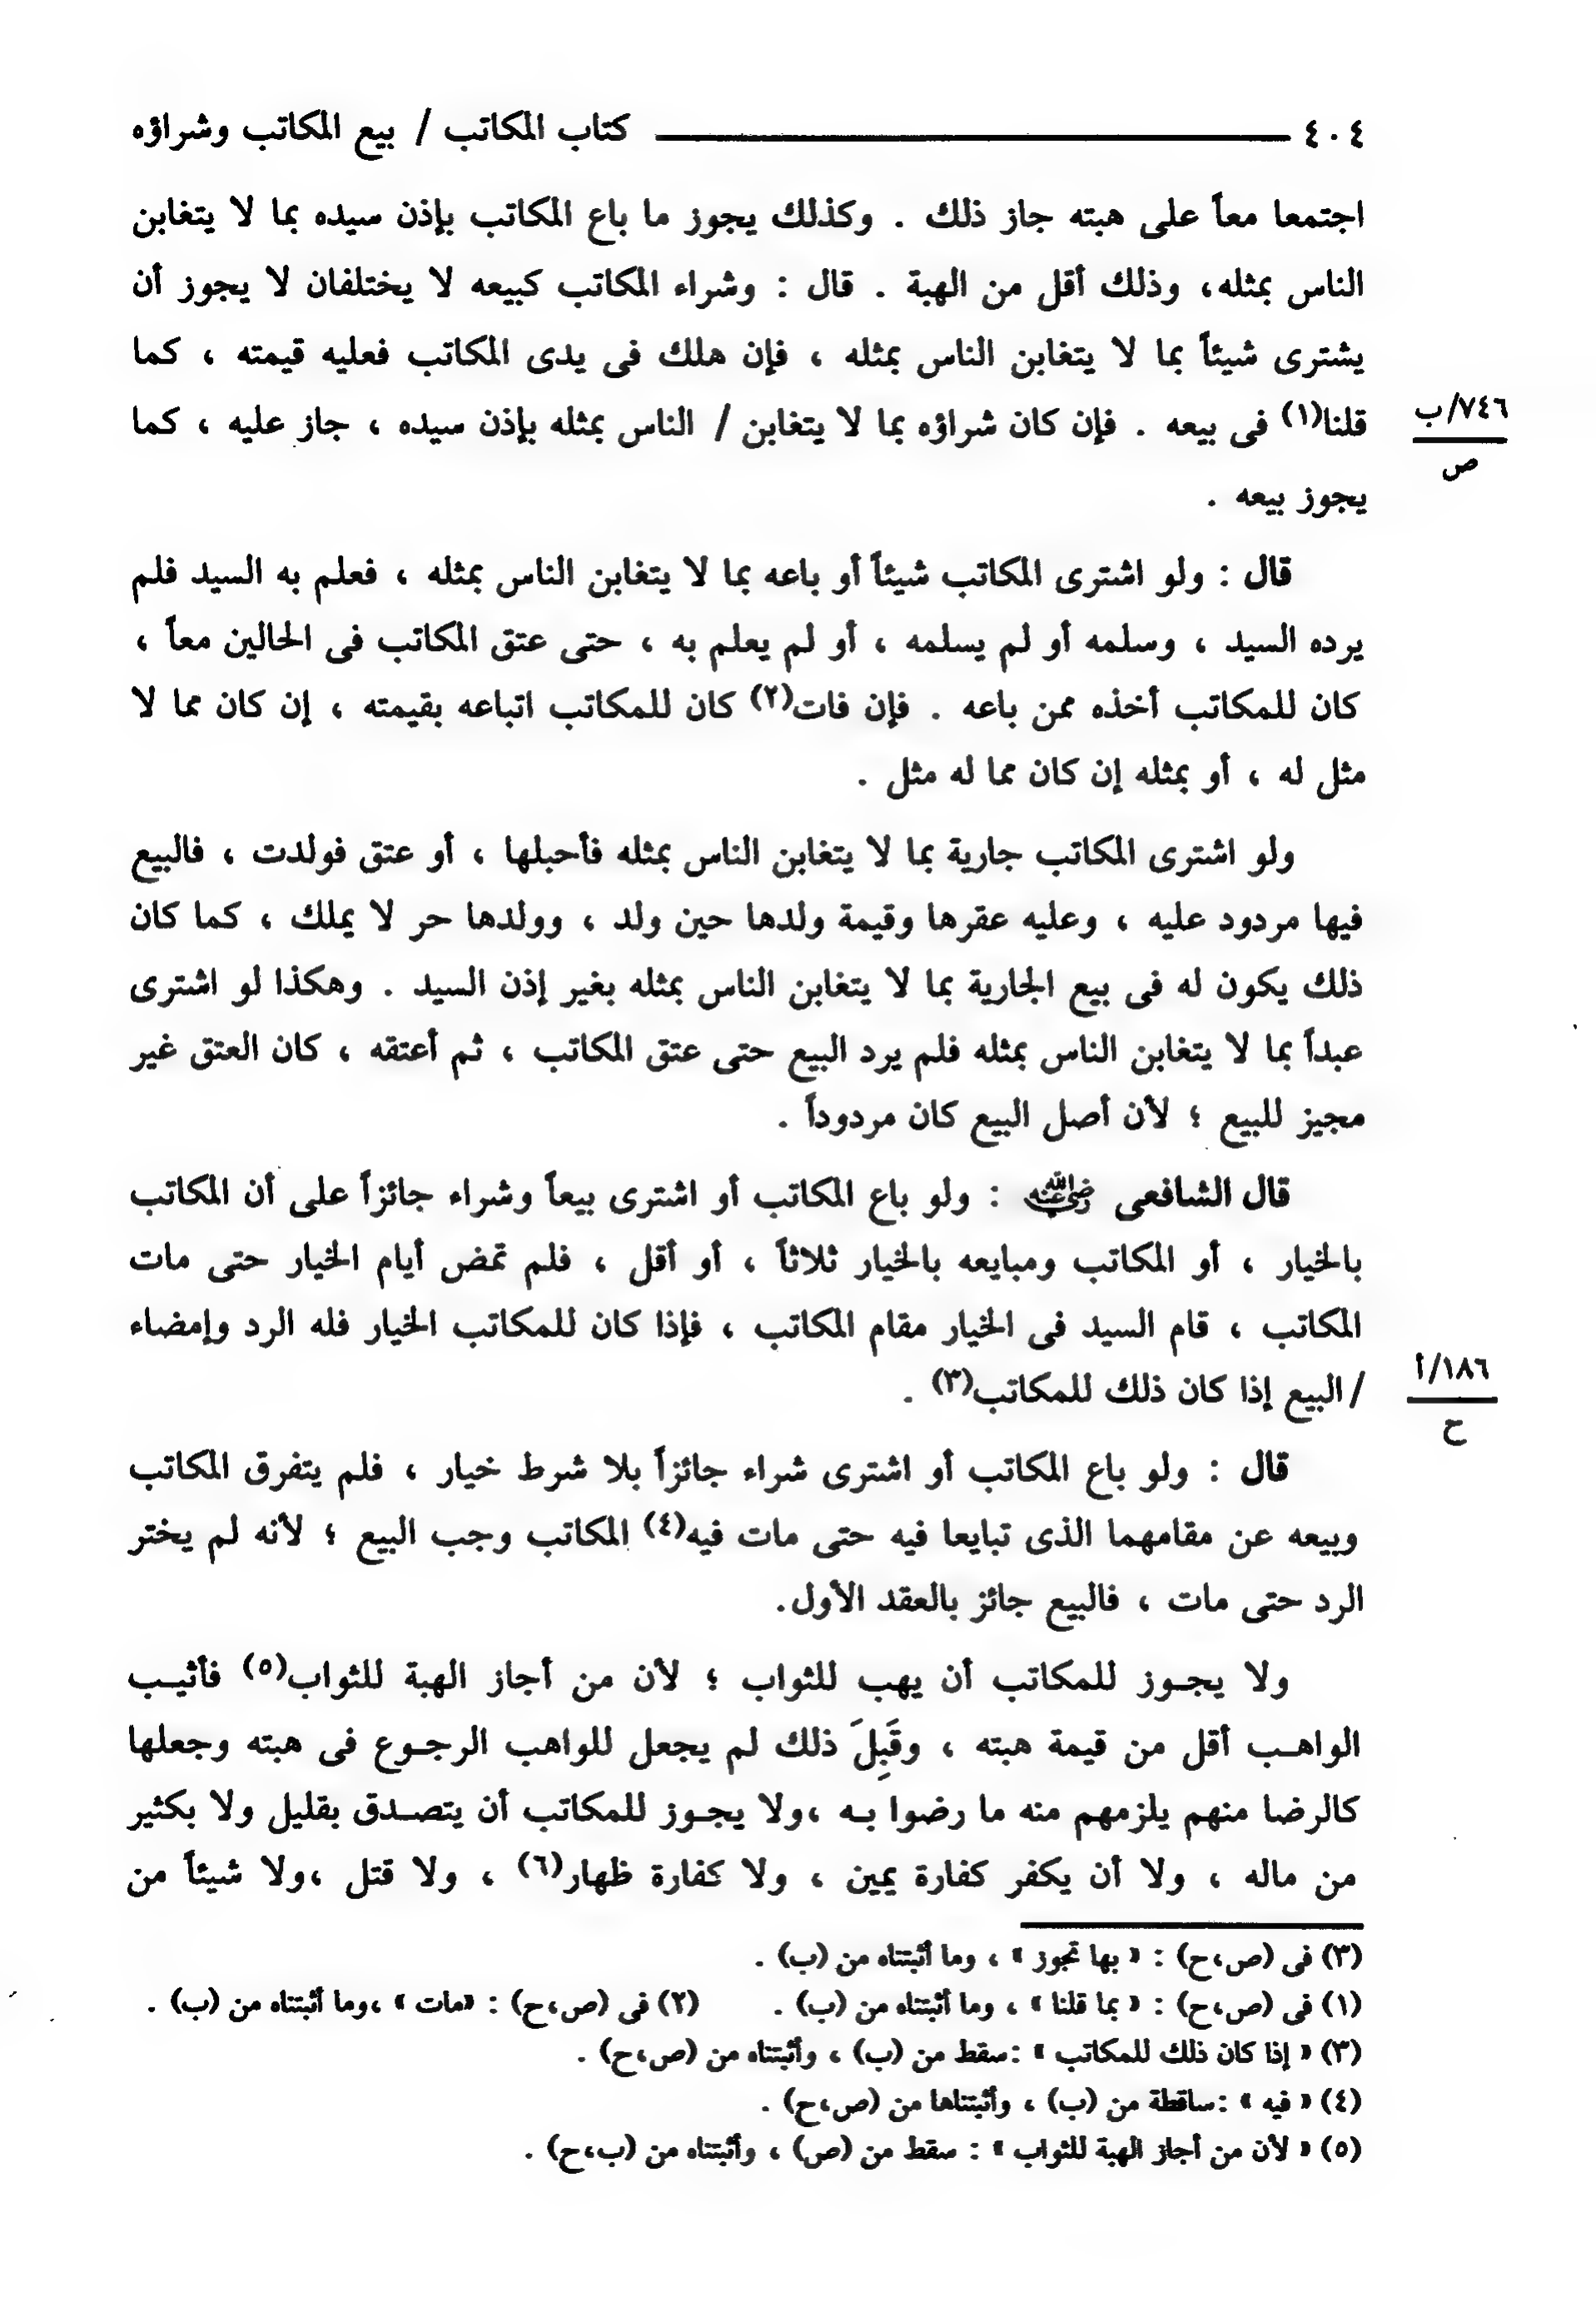 ٤٠٤ كتاب المكاتب / بيع المكاتب وشراؤه
اجتمعا معاً على هبته جاز ذلك . وكذلك يجوز ما باع المكاتب بإذن سيده بما لا يتغابن
الناس بمثله، وذلك أقل من الهبة . قال : وشراء المكاتب كبيعه لا يختلفان لا يجوز أن
يشترى شيئاً بما لا يتغابن الناس بمثله ، فإن هلك فى يدى المكاتب فعليه قيمته ، كما
قلنا(١) فى بيعه . فإن كان شراؤه بما لا يتغابن / الناس بمثله بإذن سيده ، جاز عليه ، كما
٧٤٦/ب
ص
يجوز بيعه .
قال : ولو اشترى المكاتب شيئاً أو باعه بما لا يتغابن الناس بمثله ، فعلم به السيد فلم
يرده السيد ، وسلمه أو لم يسلمه ، أو لم يعلم به ، حتى عتق المكاتب فى الحالين معاً ،
كان للمكاتب أخذه ممن باعه . فإن فات(٢) كان للمكاتب اتباعه بقيمته ، إن كان مما لا
مثل له ، أو بمثله إن كان مما له مثل .
ولو اشترى المكاتب جارية بما لا يتغابن الناس بمثله فأحبلها ، أو عتق فولدت ، فالبيع
فيها مردود عليه ، وعليه عقرها وقيمة ولدها حين ولد ، وولدها حر لا يملك ، كما كان
ذلك يكون له فى بيع الجارية بما لا يتغابن الناس بمثله بغير إذن السيد . وهكذا لو اشترى
عبداً بما لا يتغابن الناس بمثله فلم يرد البيع حتى عتق المكاتب ، ثم أعتقه ، كان العتق غير
مجيز للبيع ؛ لأن أصل البيع كان مردوداً .
قال الشافعى رضي الله عنه : ولو باع المكاتب أو اشترى بيعاً وشراء جائزاً على أن المكاتب
بالخيار ، أو المكاتب ومبايعه بالخيار ثلاثاً ، أو أقل ، فلم تمض أيام الخيار حتى مات
المكاتب ، قام السيد فى الخيار مقام المكاتب ، فإذا كان للمكاتب الخيار فله الرد وإمضاء
/ البيع إذا كان ذلك للمكاتب(٣) .
١٨٦/أ
ح
قال : ولو باع المكاتب أو اشترى شراء جائزاً بلا شرط خيار ، فلم يتفرق المكاتب
وبيعه عن مقامهما الذى تبايعا فيه حتى مات فيه(٤) المكاتب وجب البيع ؛ لأنه لم يختر
الرد حتى مات ، فالبيع جائز بالعقد الأول.
ولا يجـوز للمكاتب أن يهب للثواب ؛ لأن من أجاز الهبة للثواب(٥) فأثيـب
الواهـب أقل من قيمة هبته ، وقَبِلَ ذلك لم يجعل للواهب الرجـوع فى هبته وجعلها
كالرضا منهم يلزمهم منه ما رضوا بـه ،ولا يجـوز للمكاتب أن يتصـدق بقليل ولا بكثير
من ماله ، ولا أن يكفر كفارة يمين ، ولا كفارة ظهار(٦) ، ولا قتل ،ولا شيئاً من
(٣) فى (ص،ح) : « بها تجوز » ، وما أثبتناه من (ب) .
(١) فى (ص،ح) : « بما قلنا » ، وما أثبتناه من (ب) . (٢) فى (ص،ح) : «مات » ،وما أثبتناه من (ب) .
(٣) « إذا كان ذلك للمكاتب » :سقط من (ب) ، وأثبتناه من (ص،ح) .
(٤) « فيه » :ساقطة من (ب) ، وأثبتناها من (ص،ح) .
(٥) « لأن من أجاز الهبة للثواب » : سقط من (ص) ، وأثبتناه من (ب،ح) .